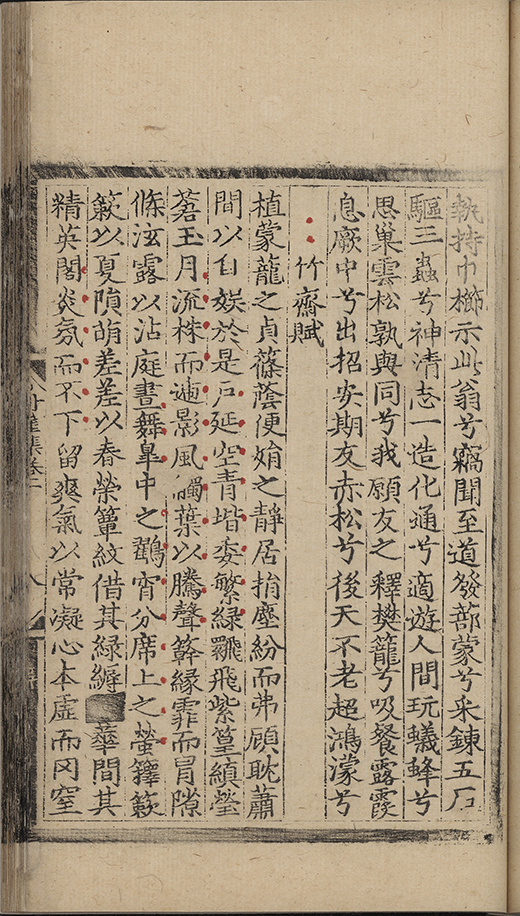 執持巾櫛示此翁兮竊聞至道發蔀蒙兮采鍊五石
驅三蟲兮神清志一造化通兮適遊人間玩蟻蜂兮
思巢雲松孰與同兮我願友之釋樊籠兮吸餐露霞
息厥中兮出招安期友赤松兮後天不老超鴻濛兮
竹齋賦
植蒙龍之貞篠蔭便娟之靜居捐塵紛而弗顧耽蕭
間以自娛於是戶延空青堦委繁綠飛紫篁縝瑩
蒼玉月流株而迤影風觸葉以騰聲緣霏而冒隙
條泫露以沾庭晝舞皐中之鸛宵分席上之螢籜簌
簌以夏隕萌差差以春榮簟紋借其綠縟華間其
精英閣炎氛而不下留爽氣以常凝心本虛而罔窒